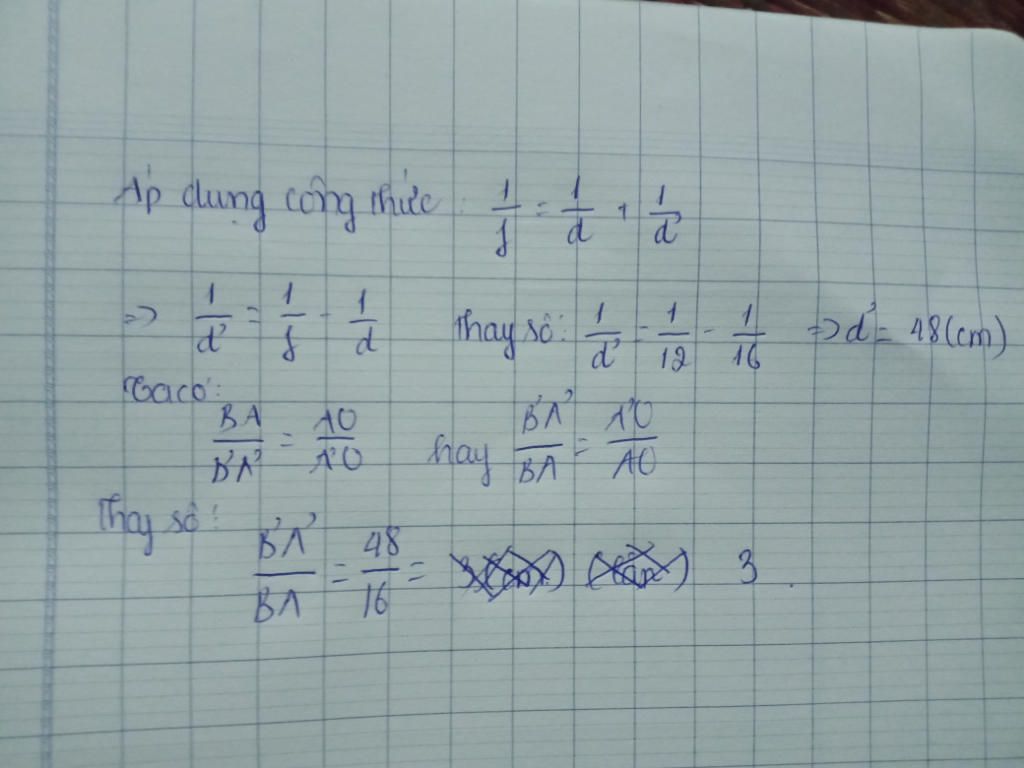 Áp dụng công thức: 1/f = 1/d + 1/d'
=> 1/d' = 1/f - 1/d Thay số: 1/d' = 1/12 - 1/16 => d' = 48 (cm)
Ta có:
BA/B'A' = AO/A'O hay B'A'/BA = A'O/AO
Thay số:
B'A'/BA = 48/16 = 3